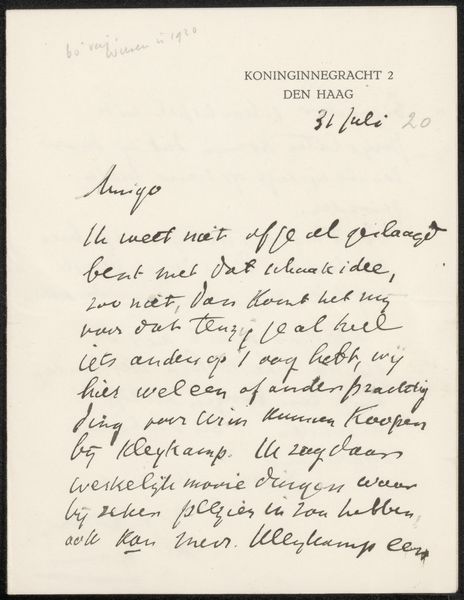 in 1920
KONINGINNEGRACHT 2
DEN HAAG
31 Juli 20
Amigo
Ik weet niet of je al geslaagd
bent met dat schaakidee,
zoo niet, dan komt het mij
voor dat tenzij je al heel
iets anders op 't oog hebt, wij
hier wel een of ander prachtig
ding voor Wim kunnen koopen
bij Kleykamp. Ik zag daar
werkelijk mooie dingen waar
hij zeker plezier in zou hebben,
ook kan mevr. Kleykamp een